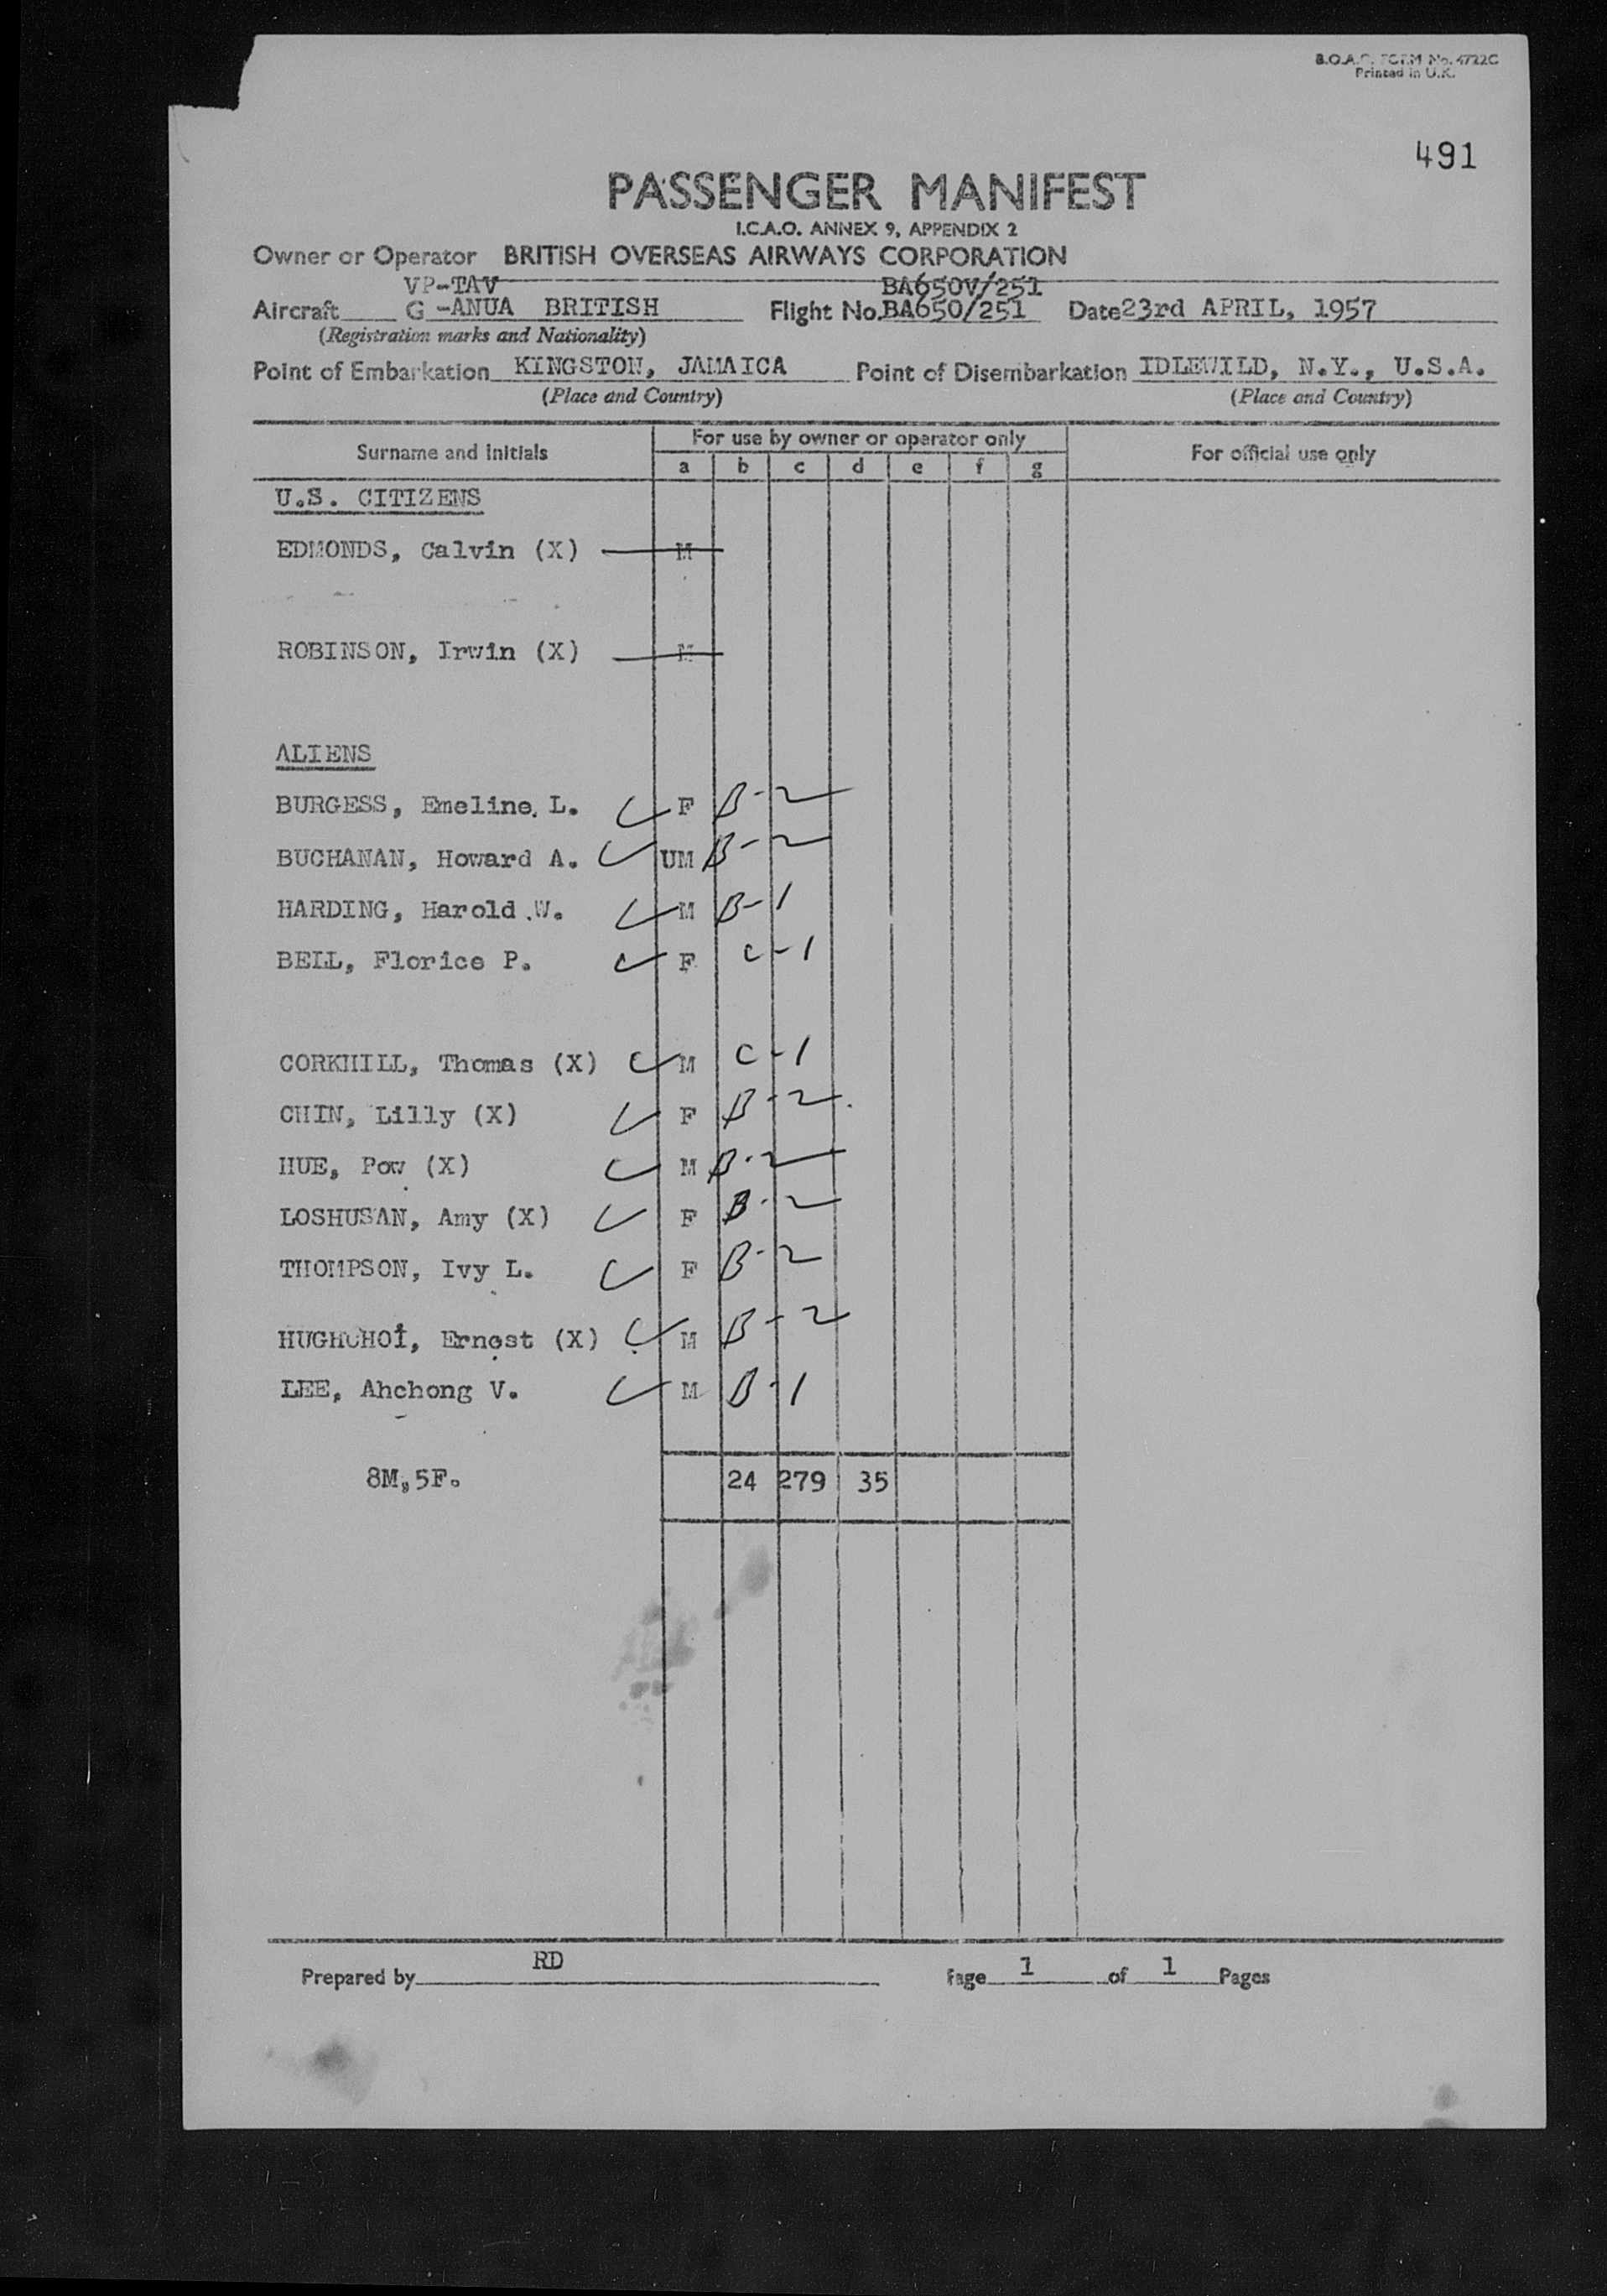 B.O.A.C. FORM No. 4722C
Printed in U.K.
491
PASSENGER MANIFEST
I.C.A.O. ANNEX 9, APPENDIX 2
Owner or Operator BRITISH OVERSEAS AIRWAYS CORPORATION
VP-TAV BA650V/251
Aircraft G -ANUA BRITISH Flight No. BA650/251 Date 23rd APRIL, 1957
(Registration marks and Nationality)
Point of Embarkation KINGSTON, JAMAICA Point of Disembarkation IDLEWILD, N.Y., U.S.A.
(Place and Country) (Place and Country)
Surname and initials For use by owner or operator only For official use only
a b c d e f g
U.S. CITIZENS
EDMONDS, Calvin (X) M
ROBINSON, Irwin (X) M
ALIENS
BURGESS, Emeline L. F B-2
BUCHANAN, Howard A. UM B-2
HARDING, Harold W. M B-1
BELL, Florice P. F C-1
CORKHILL, Thomas (X) M C-1
CHIN, Lilly (X) F B-2
HUE, Pow (X) M B-2
LOSHUSAN, Amy (X) F B-2
THOMPSON, Ivy L. F B-2
HUGHCHOI, Ernest (X) M B-2
LEE, Ahchong V. M B-1
8M,5F. 24 279 35
Prepared by RD Page 1 of 1 Pages